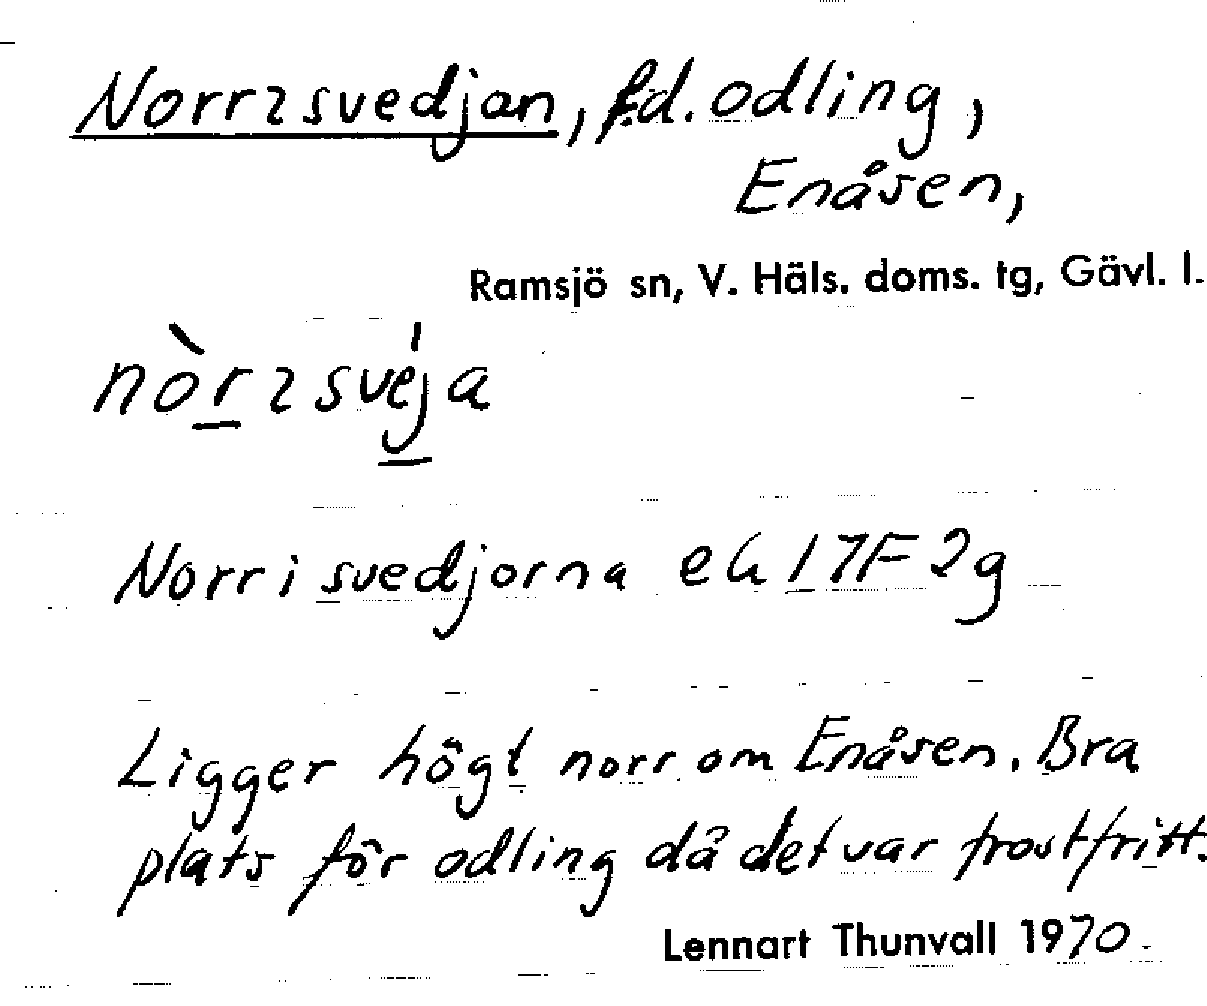 Norrzsvedjan, f.d. odling,
Enåsen,
Ramsjö sn, V. Häls. doms. tg, Gävl. l.
nòrzsvéja
Norr i svedjorna ek 17F 2g
Ligger högt norr om Enåsen. Bra
plats för odling då det var frostfritt.
Lennart Thunvall 1970